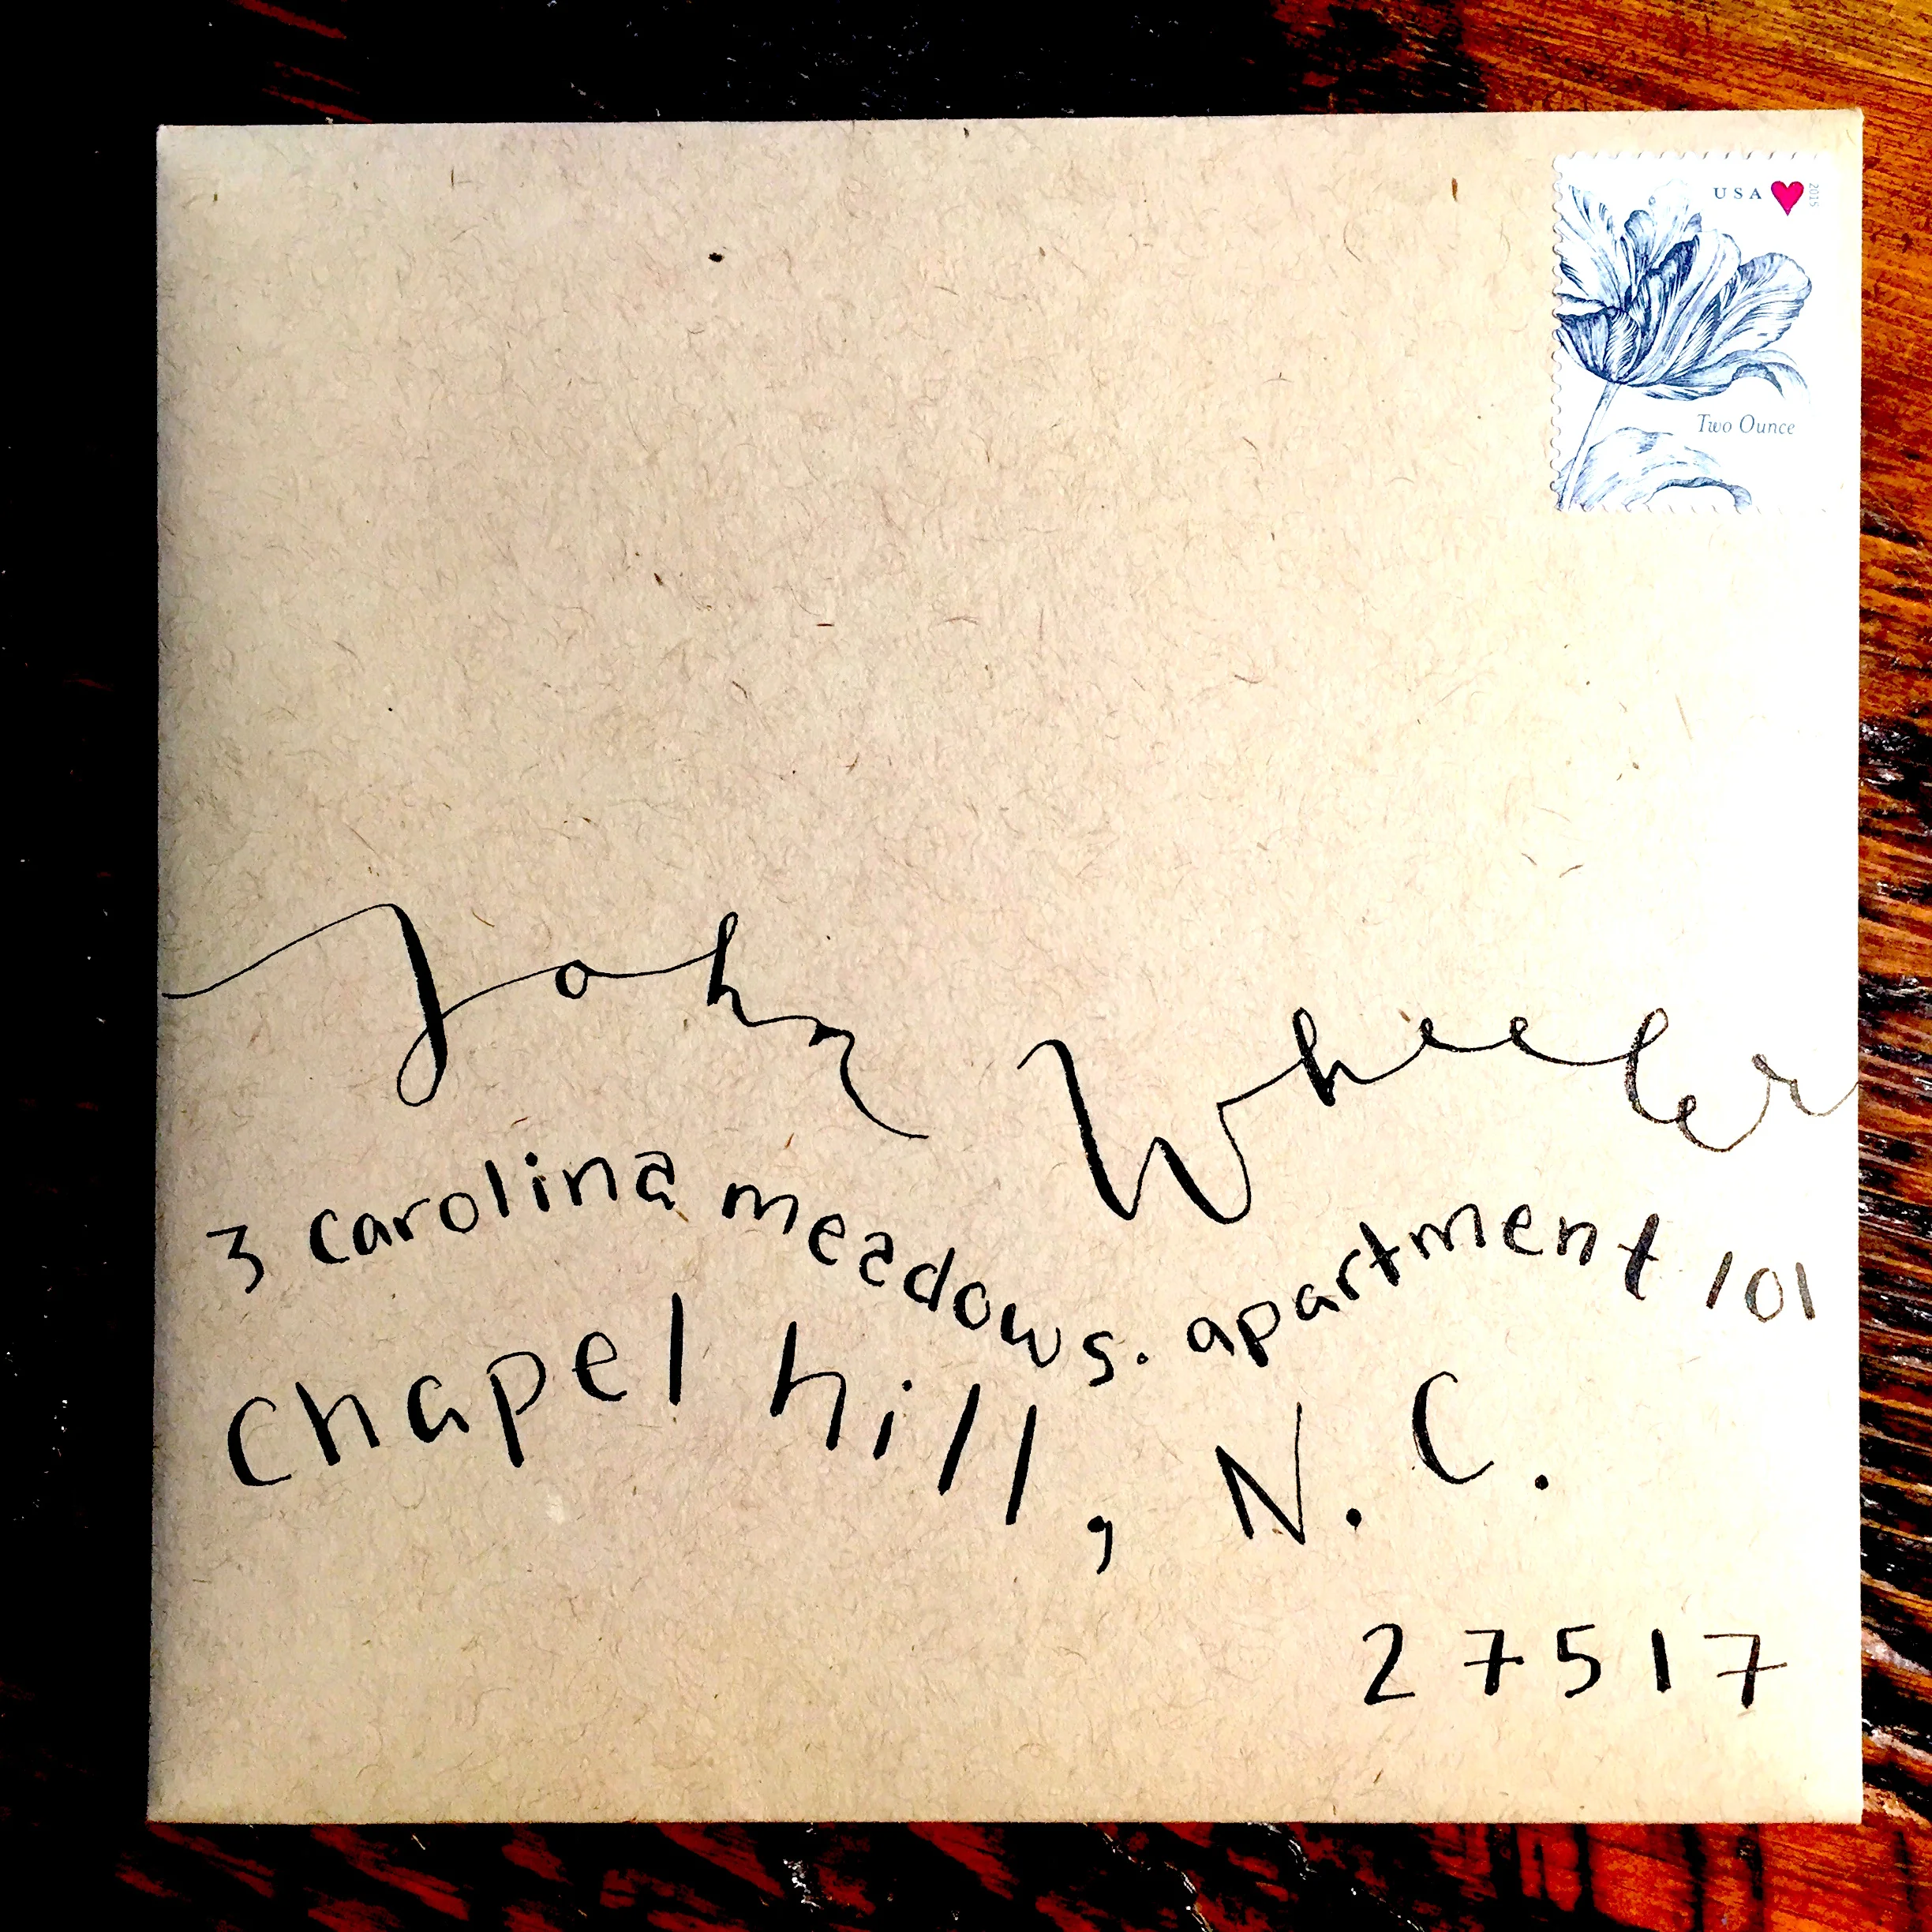 USA 2015
Two Ounce
John Wheeler
3 carolina meadows. apartment 101
chapel hill, N.C.
27517